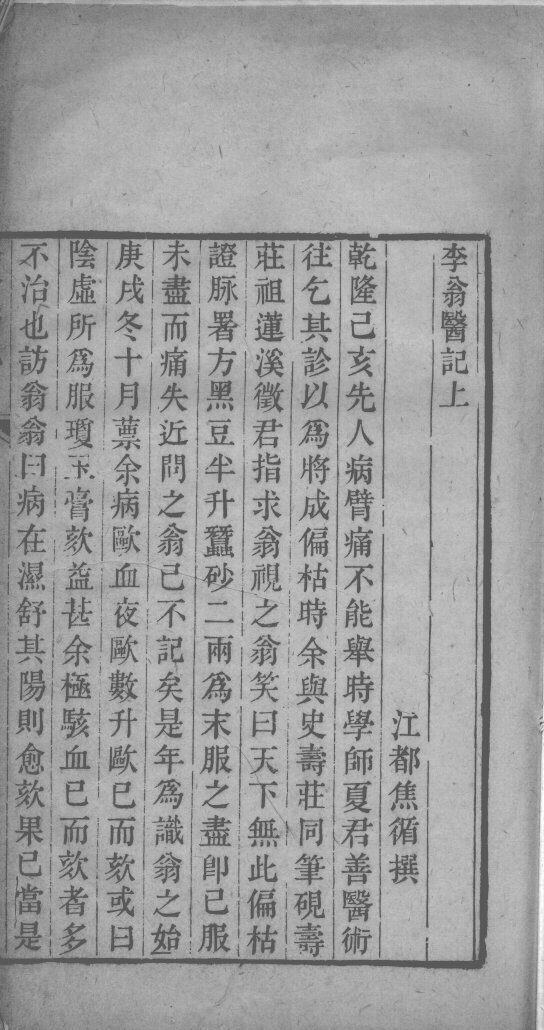 李翁醫記上
江都焦循撰
乾隆己亥先人病臂痛不能舉時學師夏君善醫術
往乞其診以爲將成偏枯時余與史壽莊同筆硯壽
莊祖蓮溪徵君指求翁視之翁笑曰天下無此偏枯
證脉署方黑豆半升蠶砂二兩爲末服之盡卽已服
未盡而痛失近問之翁已不記矣是年爲識翁之始
庚戌冬十月藁余病歐血夜歐數升歐已而欬或曰
陰虛所爲服瓊玉膏欬益甚余極駭血已而欬者多
不治也訪翁翁曰病在濕舒其陽則愈欬果已當是